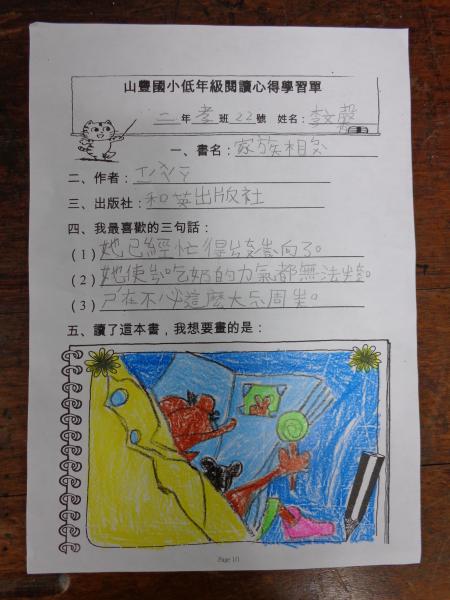 山豐國小低年級閱讀心得學習單
二年孝班22號 姓名：李文馨
一、書名：家族相
二、作者：
三、出版社：和英出版社
四、我最喜歡的三句話：
(1)她已經忙得ㄊㄡˊ向了。
(2)她使出吃奶的力氣都無法
(3)ㄕˊ在不ㄅㄧˋ這麼大
五、讀了這本書，我想要畫的是：
Page 1/1